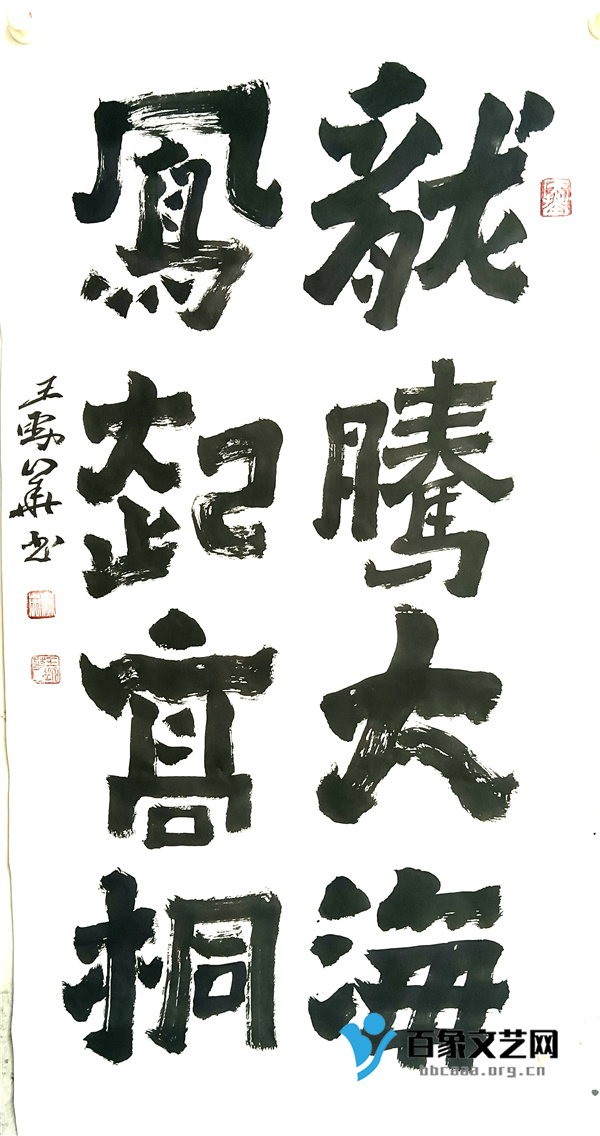 龍騰大海
鳳起髙桐
王 華书
百象文艺网
bbcaaa.org.cn